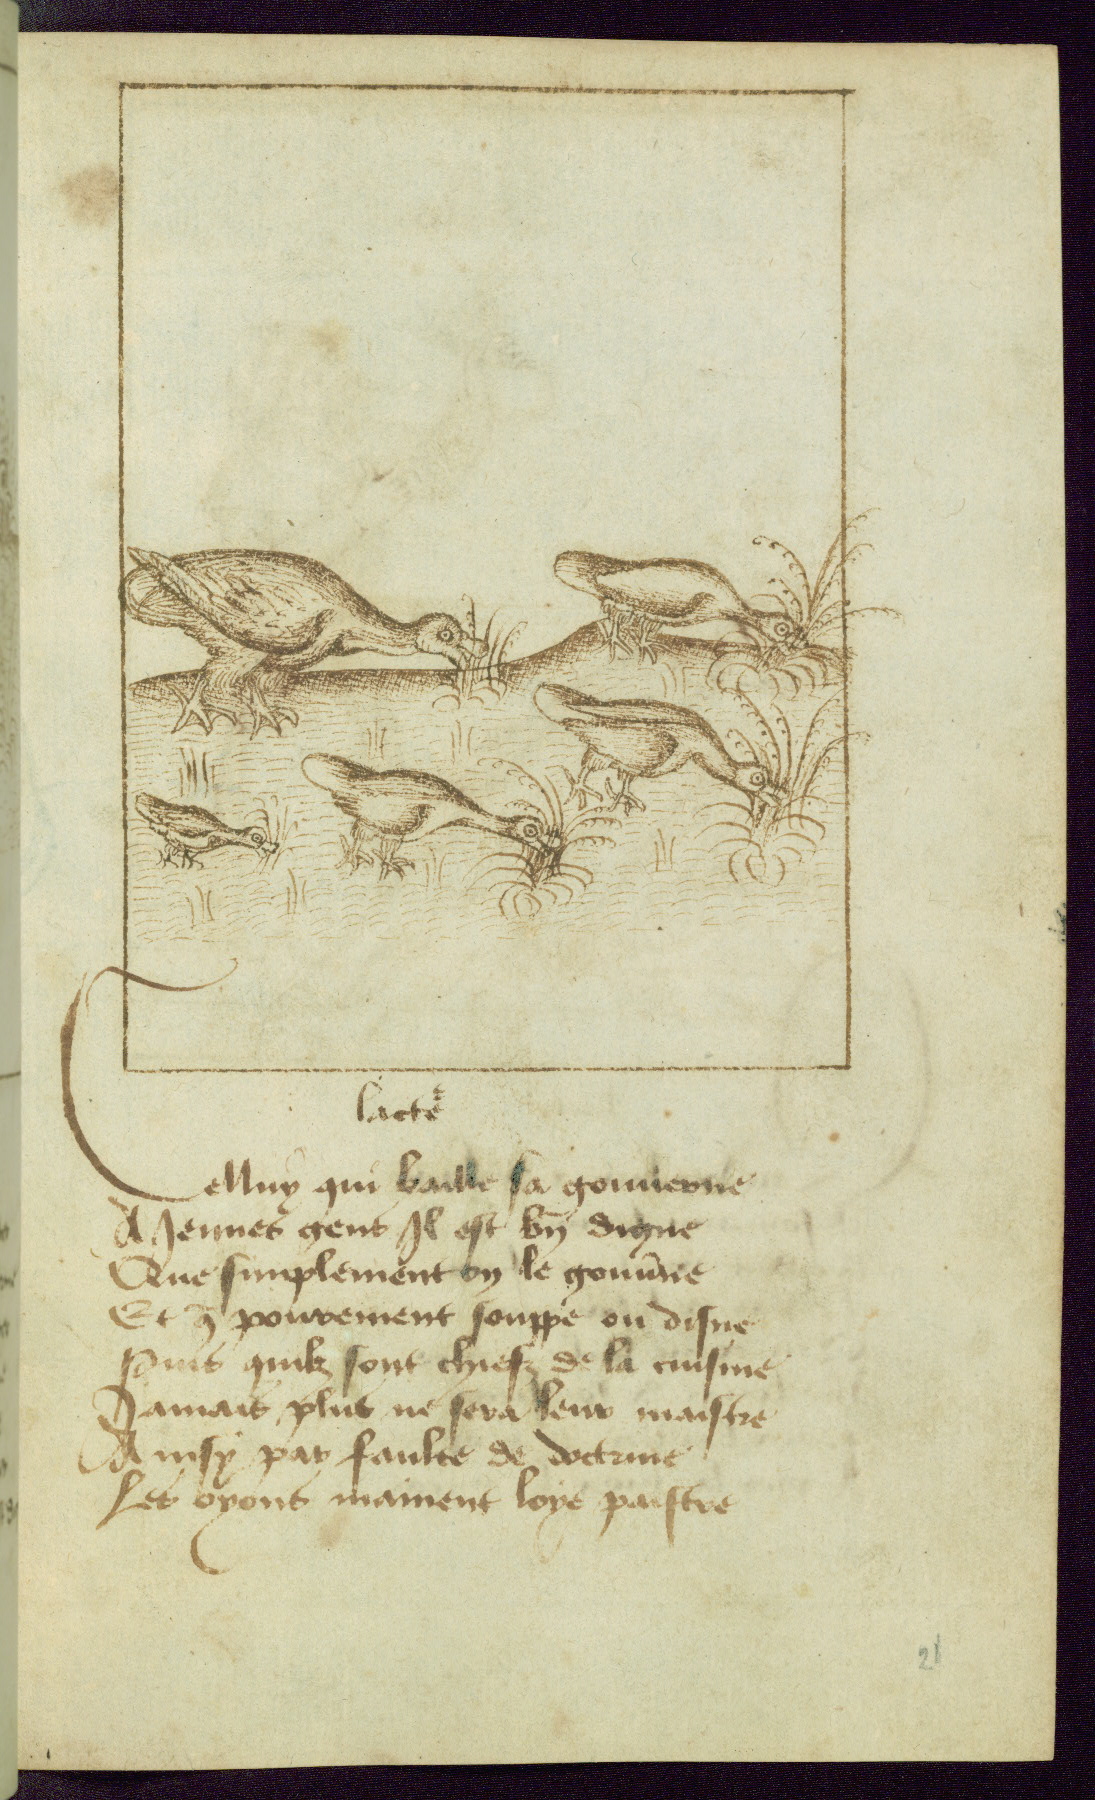 lacte᷒
Celluy qui baille sa gouuerne
A Jeunes gens Il est bn̄ digne
Que simplement on le gouūne
Et q̄ pourement souppe ou disne
Puis quilz sont chiefz de la cuisine
Jamais plus ne sera leur maistre
Ainsy par faulte de doctrine
Les oyons mainent loye paistre
21